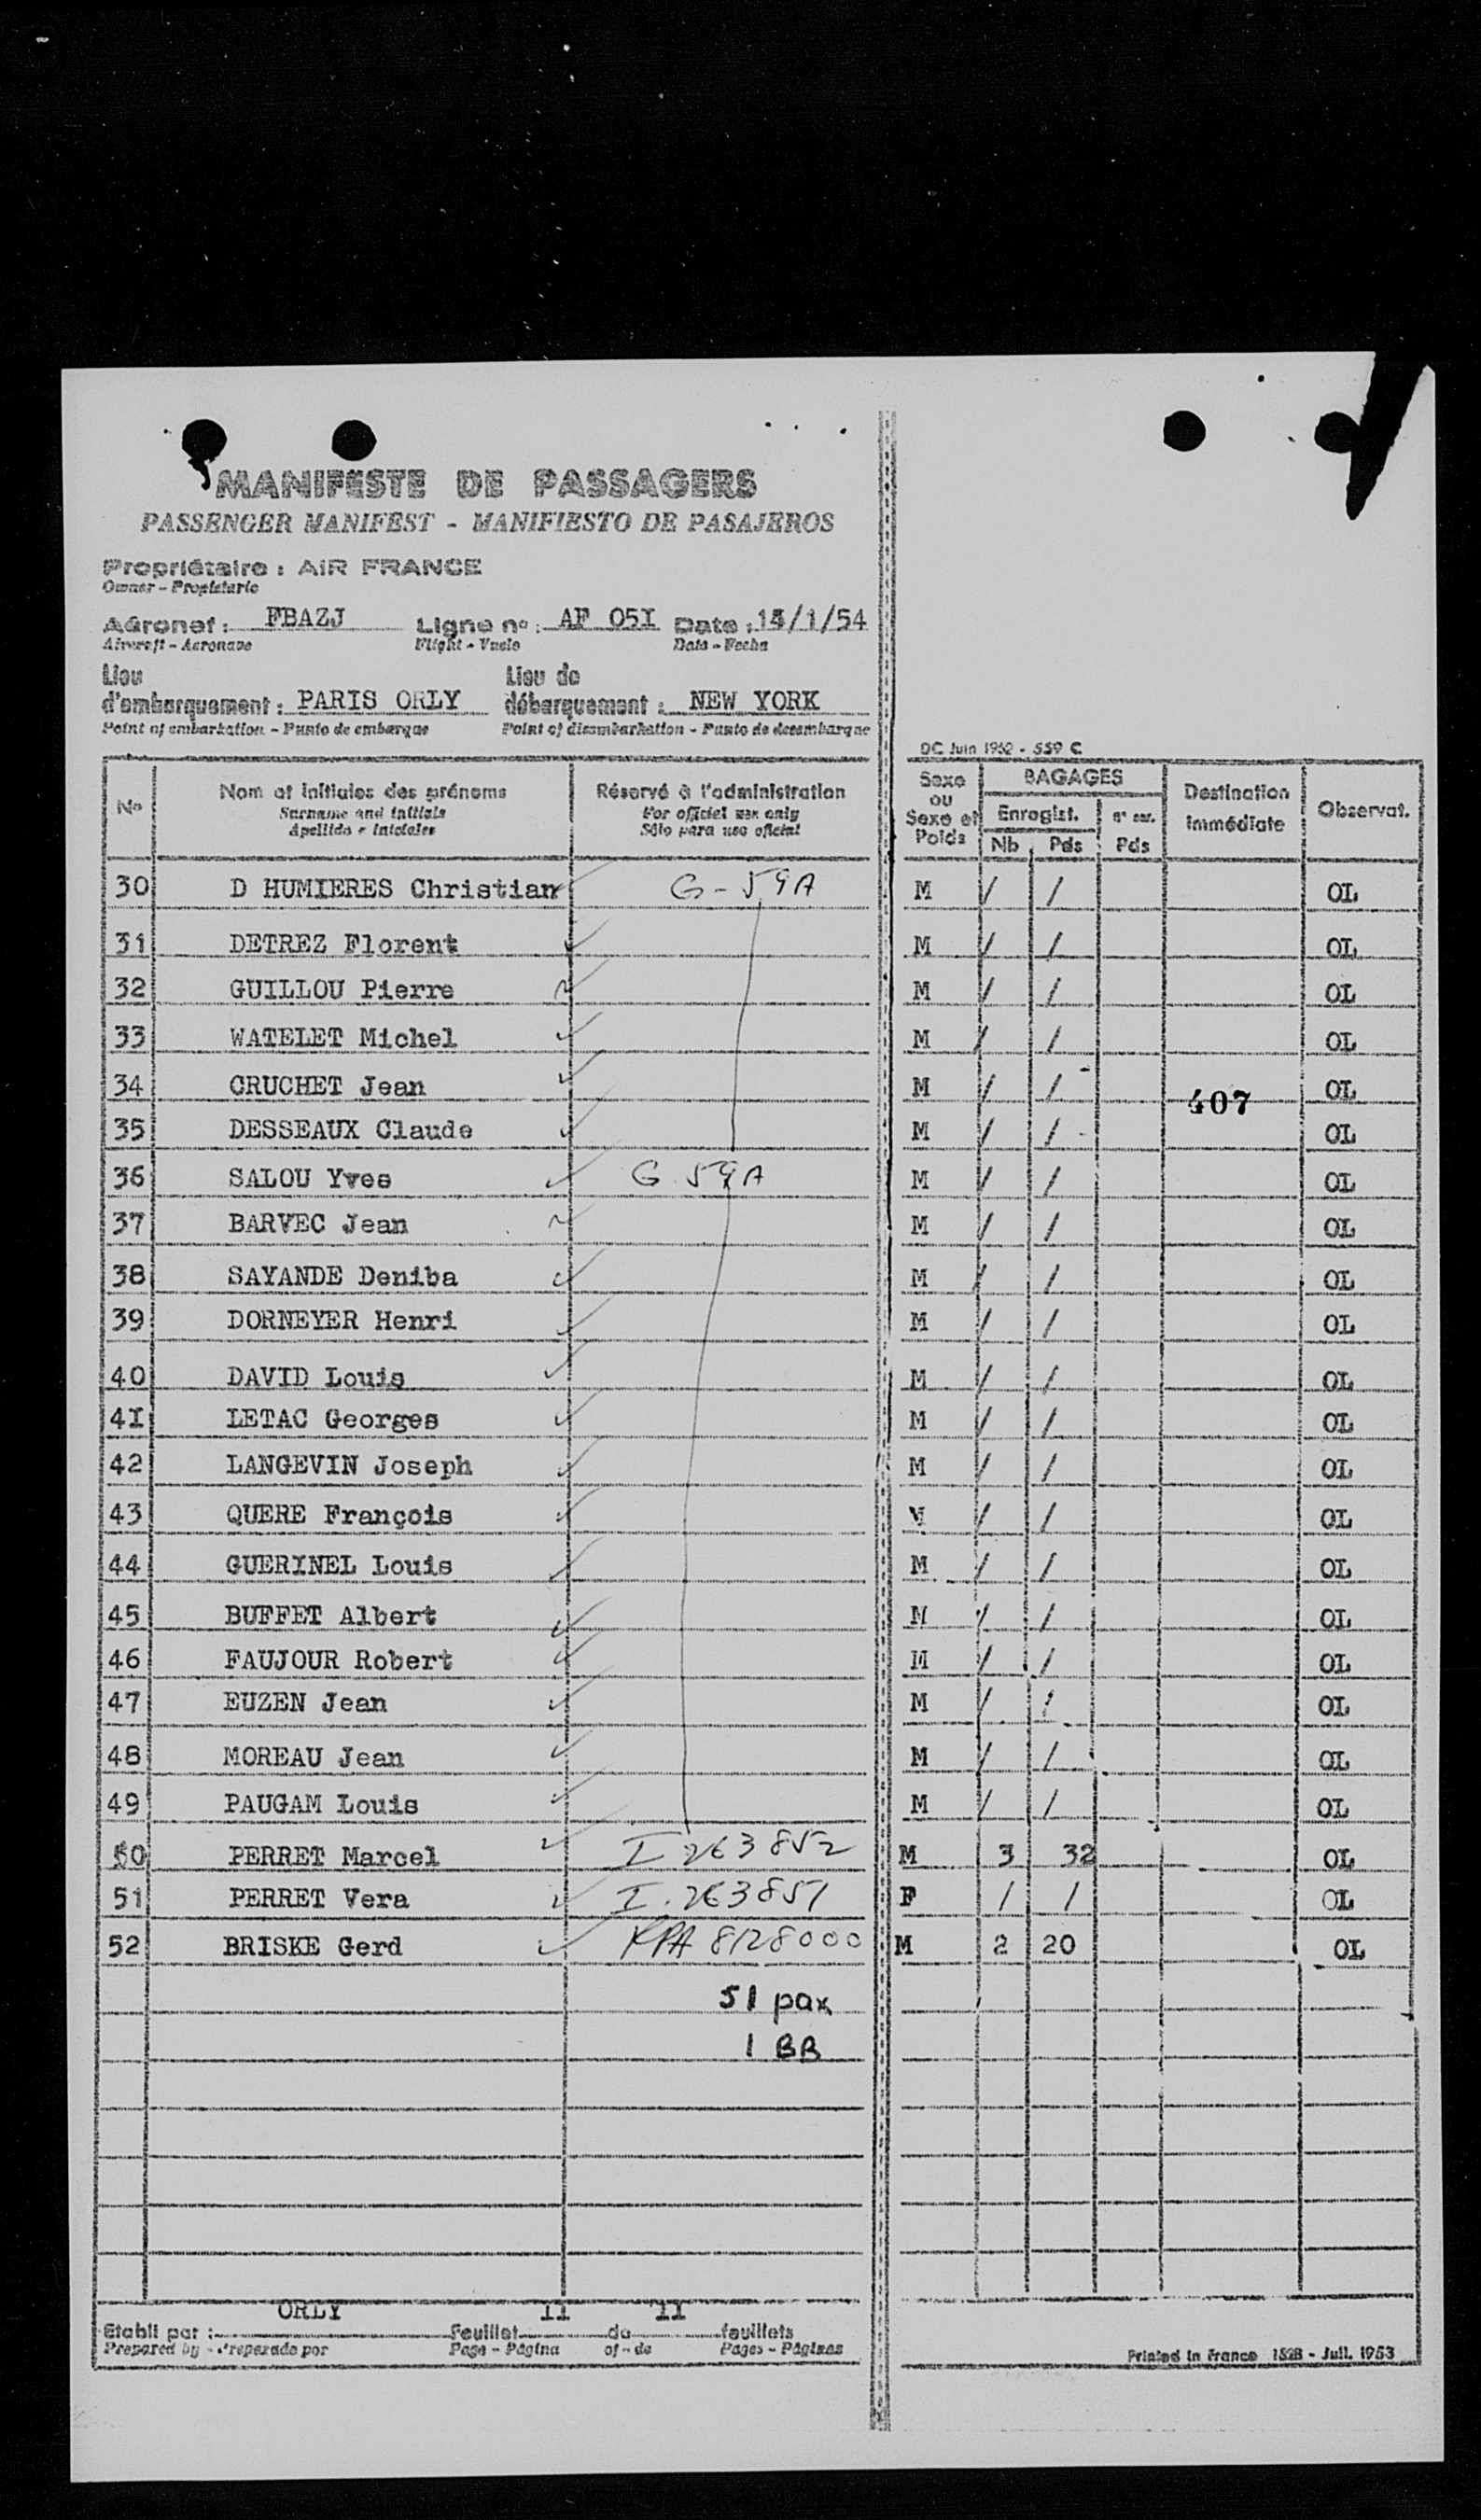 MANIFESTE DE PASSAGERS
PASSENGER MANIFEST - MANIFIESTO DE PASAJEROS
Propriétaire : AIR FRANCE
Owner - Propietario
Aéronef : FBAZJ Ligne no : AF 05I Date : /1/54
Aircraft - Aeronave Flight - Vuelo Date - Fecha
Lieu d'embarquement : PARIS ORLY Lieu de débarquement : NEW YORK
Point of embarkation - Punto de embarque Point of disembarkation - Punto de desembarque
DC Juin 1952 - 559 C
No Nom et initiales des prénoms Réservé à l'administration Sexe ou Sexe et Poids BAGAGES Destination immédiate Observat.
Surname and initials For official use only Enregist. Nb Pds Pds
Apellido e iniciales Sólo para uso oficial
30 D HUMIERES Christian G-59A M / / OL
31 DETREZ Florent M / / OL
32 GUILLOU Pierre M / / OL
33 WATELET Michel M / / OL
34 CRUCHET Jean M / / 407 OL
35 DESSEAUX Claude M / / OL
36 SALOU Yves G 59A M / / OL
37 BARVEC Jean M / / OL
38 SAYANDE Deniba M / / OL
39 DORNEYER Henri M / / OL
40 DAVID Louis M / / OL
4I LETAC Georges M / / OL
42 LANGEVIN Joseph M / / OL
43 QUERE François M / / OL
44 GUERINEL Louis M / / OL
45 BUFFET Albert M / / OL
46 FAUJOUR Robert M / / OL
47 EUZEN Jean M / / OL
48 MOREAU Jean M / / OL
49 PAUGAM Louis M / / OL
50 PERRET Marcel I 263852 M 3 32 OL
51 PERRET Vera I.263851 F / / OL
52 BRISKE Gerd 8128000 M 2 20 OL
51 pax
1 BB
Etabli par : ORLY Feuillet 11 de 11 feuillets
Prepared by - Preparado por Page - Página of - de Pages - Páginas
Printed in France 152B - Juil. 1953